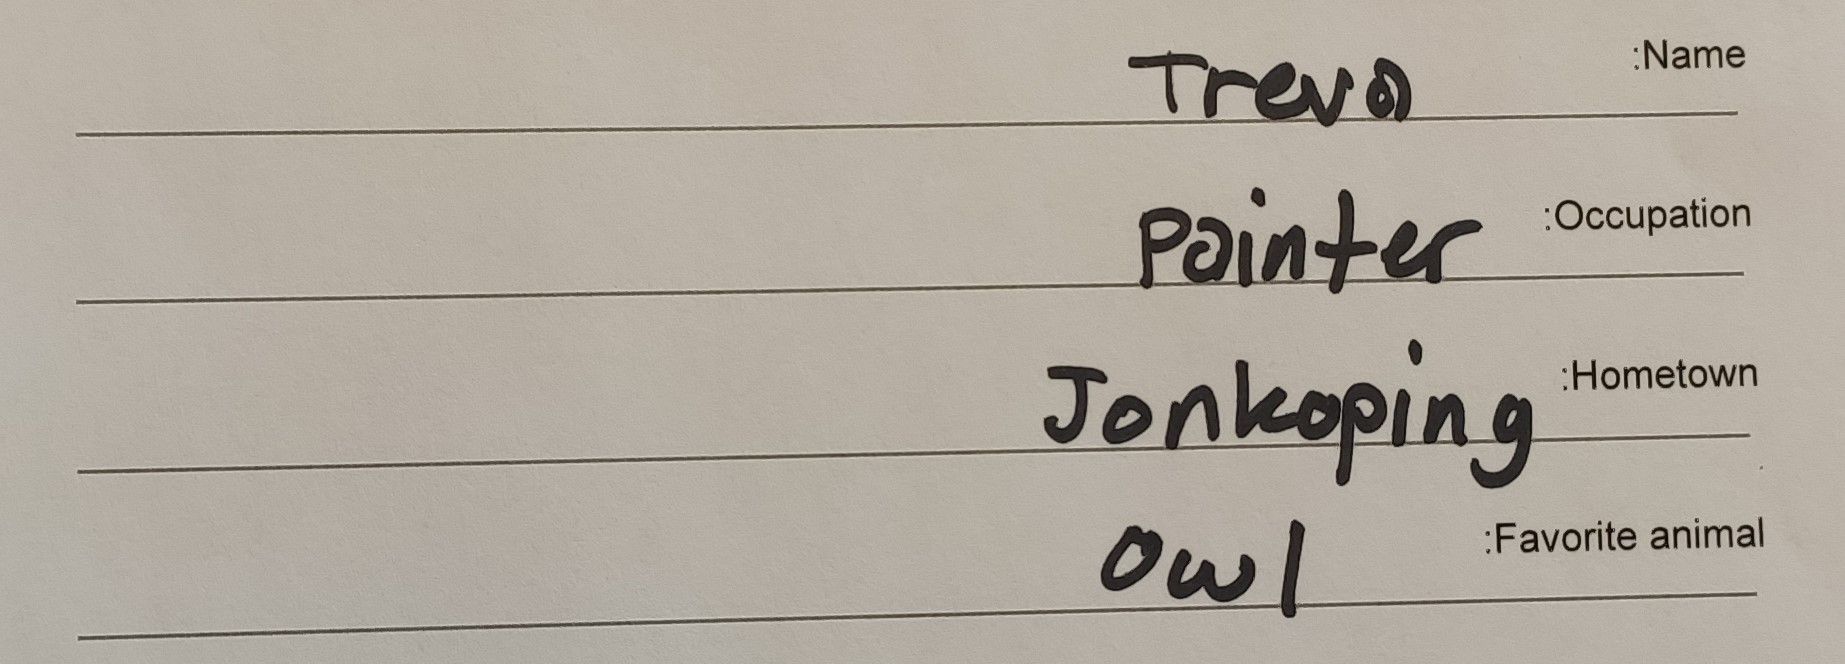 :Name Treva
:Occupation Painter
:Hometown Jonkoping
:Favorite animal Owl